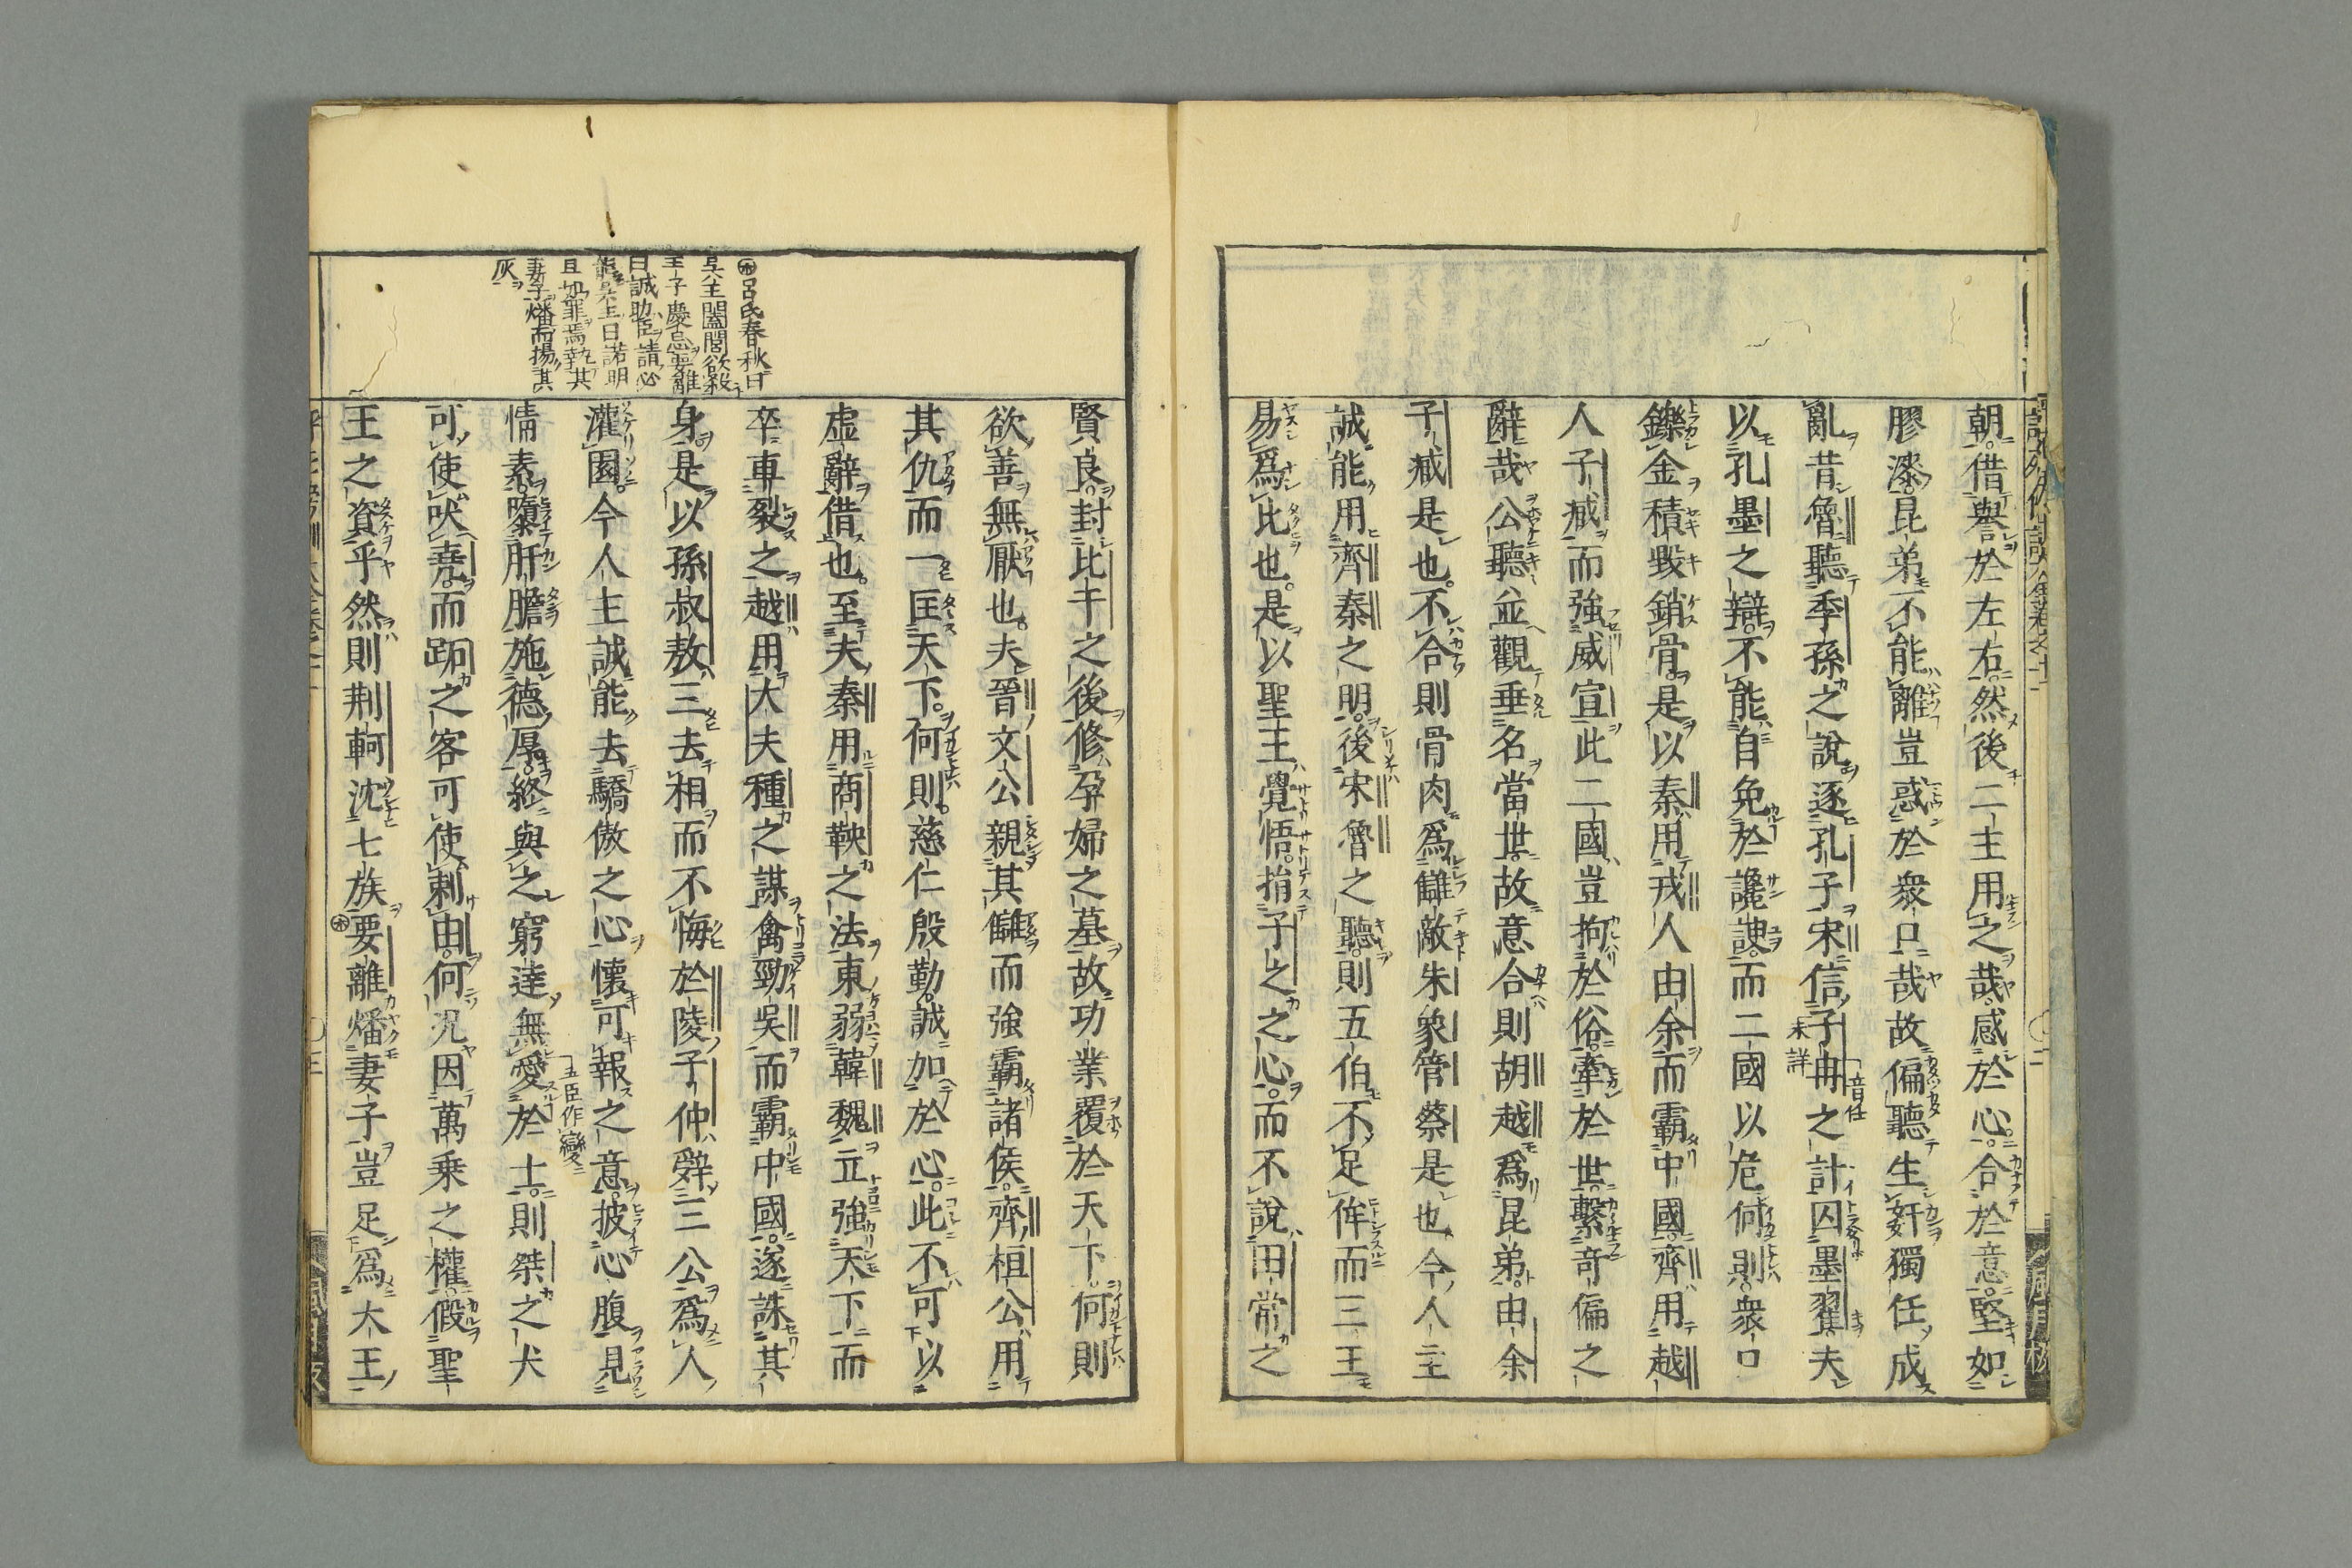 朝借譽於左右然後二主用之哉感於心合於意堅如
膠漆昆弟不能離豈惑於衆口哉故偏聽生姧獨任成
亂昔魯聽季孫之說逐孔子宋信子冉之計囚墨翟夫
音任
未詳
以孔墨之辯不能自免於讒諛而二國以危何則衆口
鑠金積毀銷骨是以秦用戎人由余而霸中國齊用越
人子臧而強威宣此二國豈拘於俗牽於世繫奇偏之
辭哉公聽並觀垂名當世故意合則胡越爲昆弟由余
子臧是也不合則骨肉爲讎敵朱象管蔡是也今人主
誠能用齊秦之明後宋魯之聽則五伯不足侔而三王
易爲比也是以聖王覺悟捐子之之心而不說田常之
賢良封比干之後修孕婦之墓故功業覆於天下何則
欲善無厭也夫晉文公親其讎而強霸諸侯齊桓公用
其仇而一匡天下何則慈仁殷勤誠加於心此不可以
虛辭借也至夫秦用商鞅之法東弱韓魏立強天下而
卒車裂之越用大夫種之謀禽勁吳而霸中國遂誅其
身是以孫叔敖三去相而不悔於陵子仲辭三公爲人
灌園今人主誠能去驕傲之心懷可報之意披心腹見
情素隳肝膽施德厚終與之窮達無愛於士則桀之犬
五臣作變
可使吠堯而跖之客可使刺由何況因萬乗之權假聖
王之資乎然則荆軻沈七族要離燔妻子豈足爲大王
呂氏春秋曰
吳王闔閭欲殺
王子慶忌要離
曰誠助臣請必
能吳王曰諾明
旦加罪焉執其
妻子燔而揚其
灰